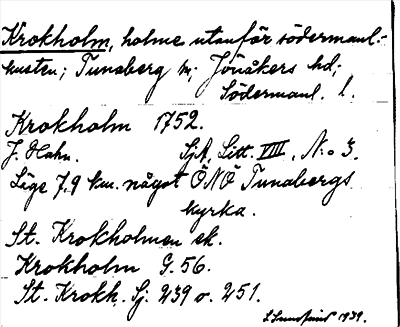 Krokholm, holme utanför södermanl.-
kusten; Tunaberg sn; Jönåkers hd;
Södermanl. l.
Krokholm 1752.
J. Hahn. SjA, Litt. VIII, N:o 3.
Läge 7,9 km. något ÖNÖ Tunabergs
kyrka.
St. Krokholmen ek.
Krokholm G. 56.
St. Krokh. Sj. 239 o. 251.
1939.